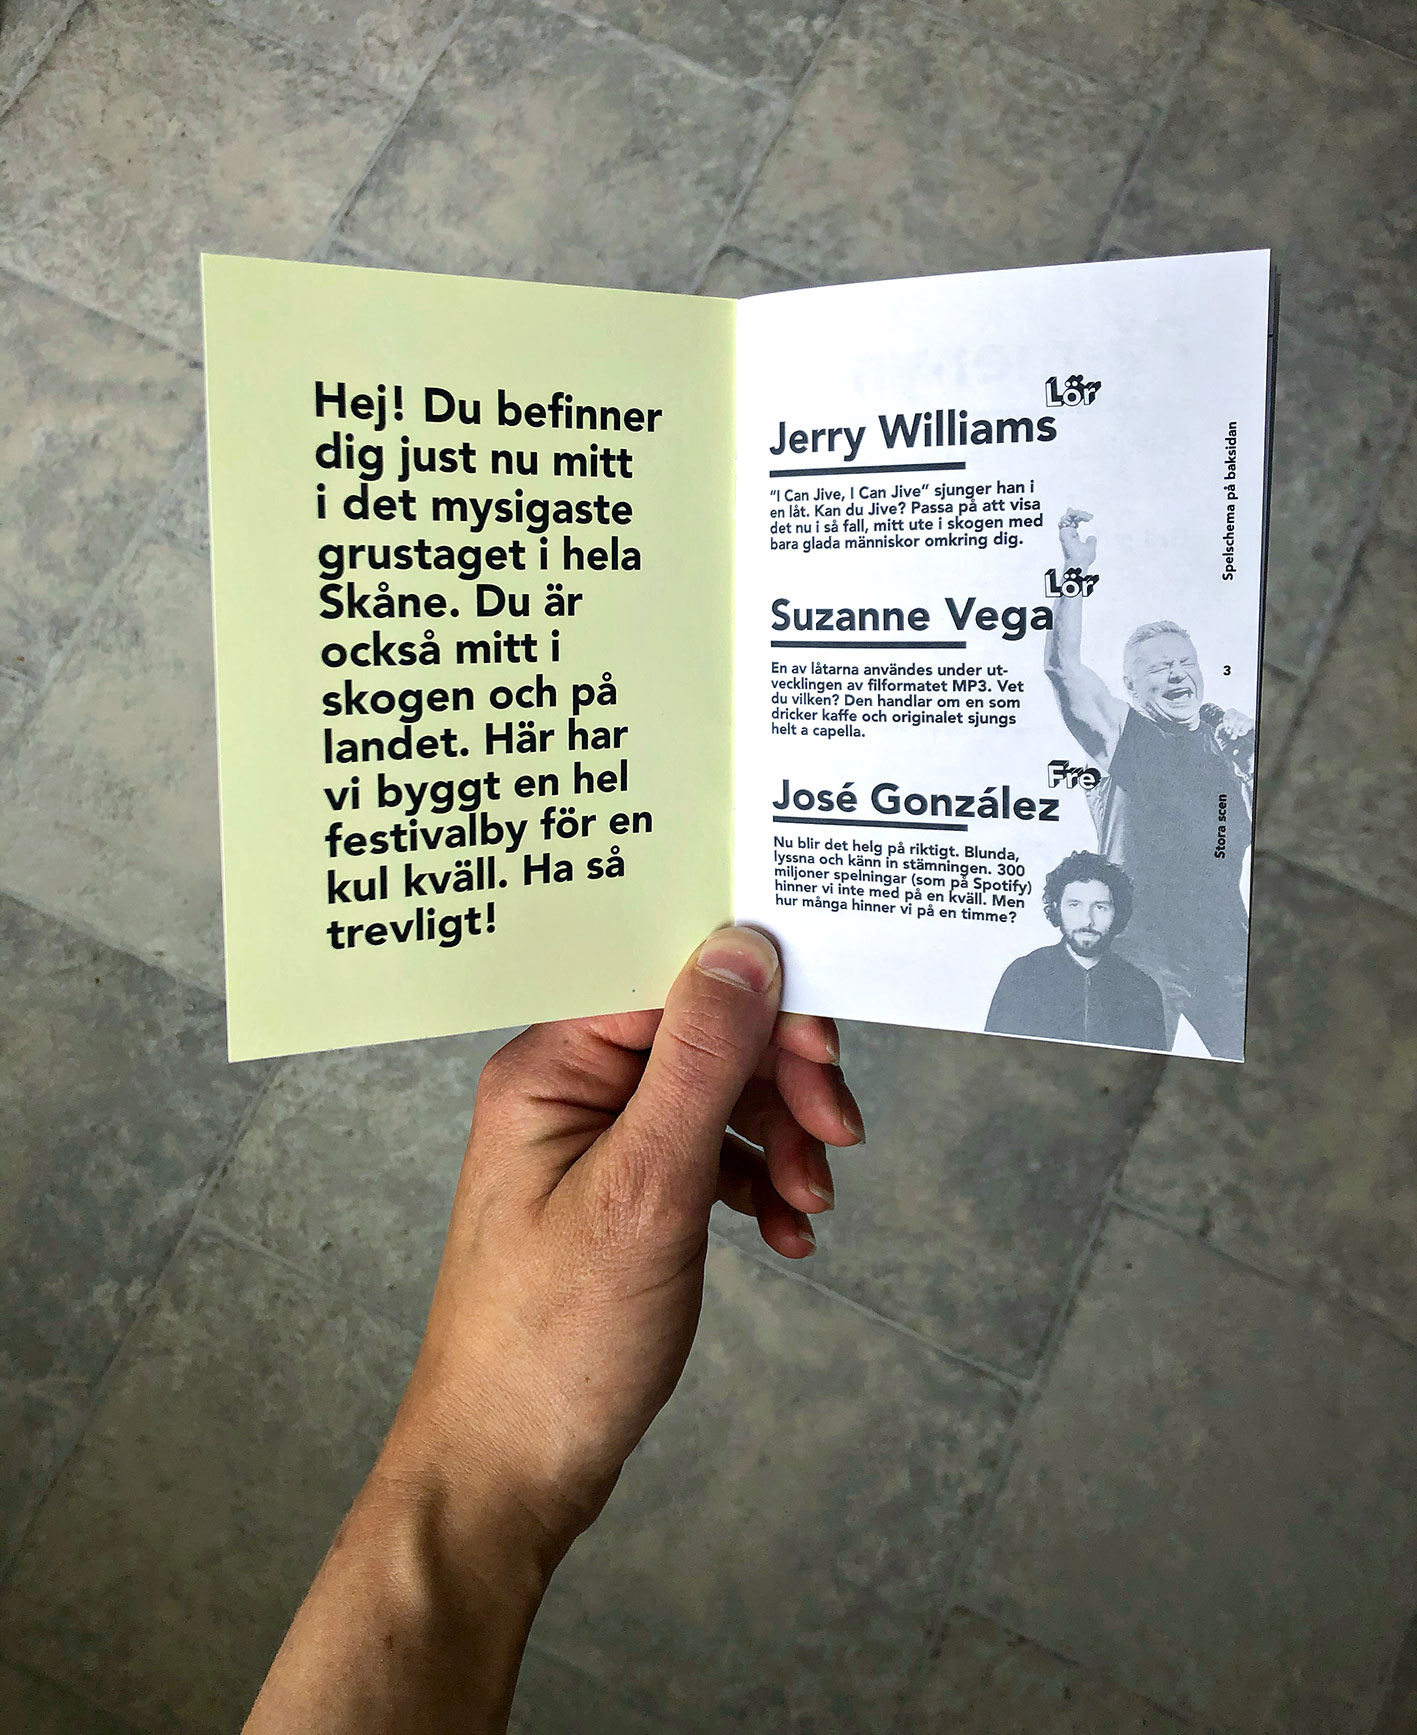 Hej! Du befinner
dig just nu mitt
i det mysigaste
grustaget i hela
Skåne. Du är
också mitt i
skogen och på
landet. Här har
vi byggt en hel
festivalby för en
kul kväll. Ha så
trevligt!
Lör
Jerry Williams
"I Can Jive, I Can Jive” sjunger han i
en låt. Kan du Jive? Passa på att visa
det nu i så fall, mitt ute i skogen med
bara glada människor omkring dig.
Lör
Suzanne Vega
En av låtarna användes under ut-
vecklingen av filformatet MP3. Vet
du vilken? Den handlar om en som
dricker kaffe och originalet sjungs
helt a capella.
Fre
José González
Nu blir det helg på riktigt. Blunda,
lyssna och känn in stämningen. 300
miljoner spelningar (som på Spotify)
hinner vi inte med på en kväll. Men
hur många hinner vi på en timme?
Spelschema på baksidan
3
Stora scen